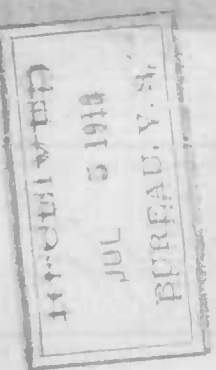 RECEIVED
JUL 5 1918
BUREAU, V. S.